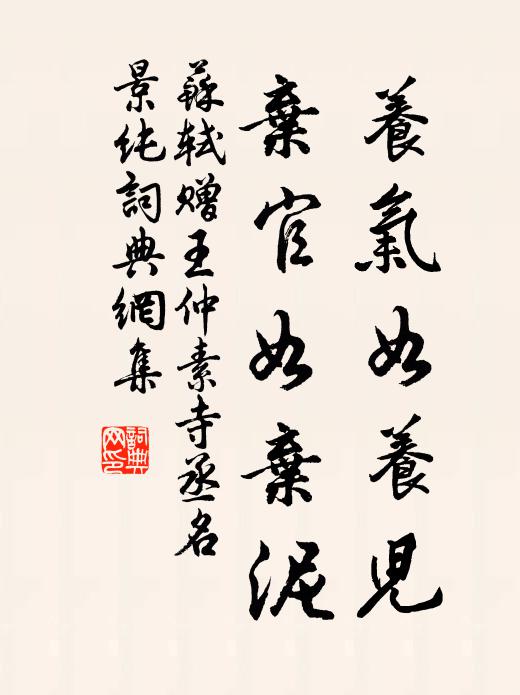 養氣如養兒
棄官如棄泥
蘇軾贈王仲素寺丞名
景純詞典網集
詞典
网印